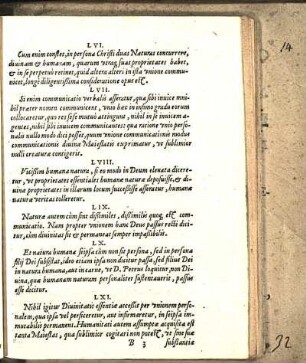 LVI.
Cum enim constet, in persona Christi duas Naturas concurrere,
diuinam & humanam, quarum vtraq; suas proprietates habet,
& in se perpetuò retinet, quid altera alteri in ista vnione commu-
nicet, longè diligentissima consideratione opus est.
LVII.
Si enim communicatio verbalis asseratur, qua sibi inuicē nihil
communicent, vnio hæc in infimo gradu eorum
collocaretur, quæ res sese mutuò attingunt, nihil in se inuicem a-
gentes, nihil sibi inuicem communicantes: qua ratione vnio perso-
nalis nullo modo dici posset, quum vnione communicationis modus
communicationis diuinæ Maiestatis exprimatur, vt sublimior
nulli creaturæ contigerit.
LVIII.
Vicissim humana natura, si eo modo in Deum euecta dicere-
tur, vt proprietates essentiales humanæ naturæ deposuisset, &
diuinæ proprietates in illarum locum successisse asseratur, humanæ
naturæ veritas tolleretur.
LIX.
Naturæ autem cùm sint dissimiles, dissimilis quoq; est com-
municatio. Nam propter vnionem hanc Deus passus rectè dici-
tur, cùm diuinitas sit & permaneat semper impassibilis.
LX.
Et natura humana seipsa cùm non sit persona, sed in persona
filij Dei subsistat, ideo etiam ipsa non dicitur passa, sed filius Dei
in natura humana, aut in carne, vt D. Petrus loquitur, non Di-
uina, quæ humanam naturam personaliter sustentauerit, passus
esse dicitur.
LXI.
Nihil igitur Diuinitati essentiæ accessit per vnionem perso-
nalem, qua ipsa vel perficeretur, aut informaretur, in seipsa im-
mutabilis permanens. Humanitati autem assumptæ acquisita est
tanta Maiestas, qua sublimior cogitari non potest, vt sua sua
B 3 substantia
14
92